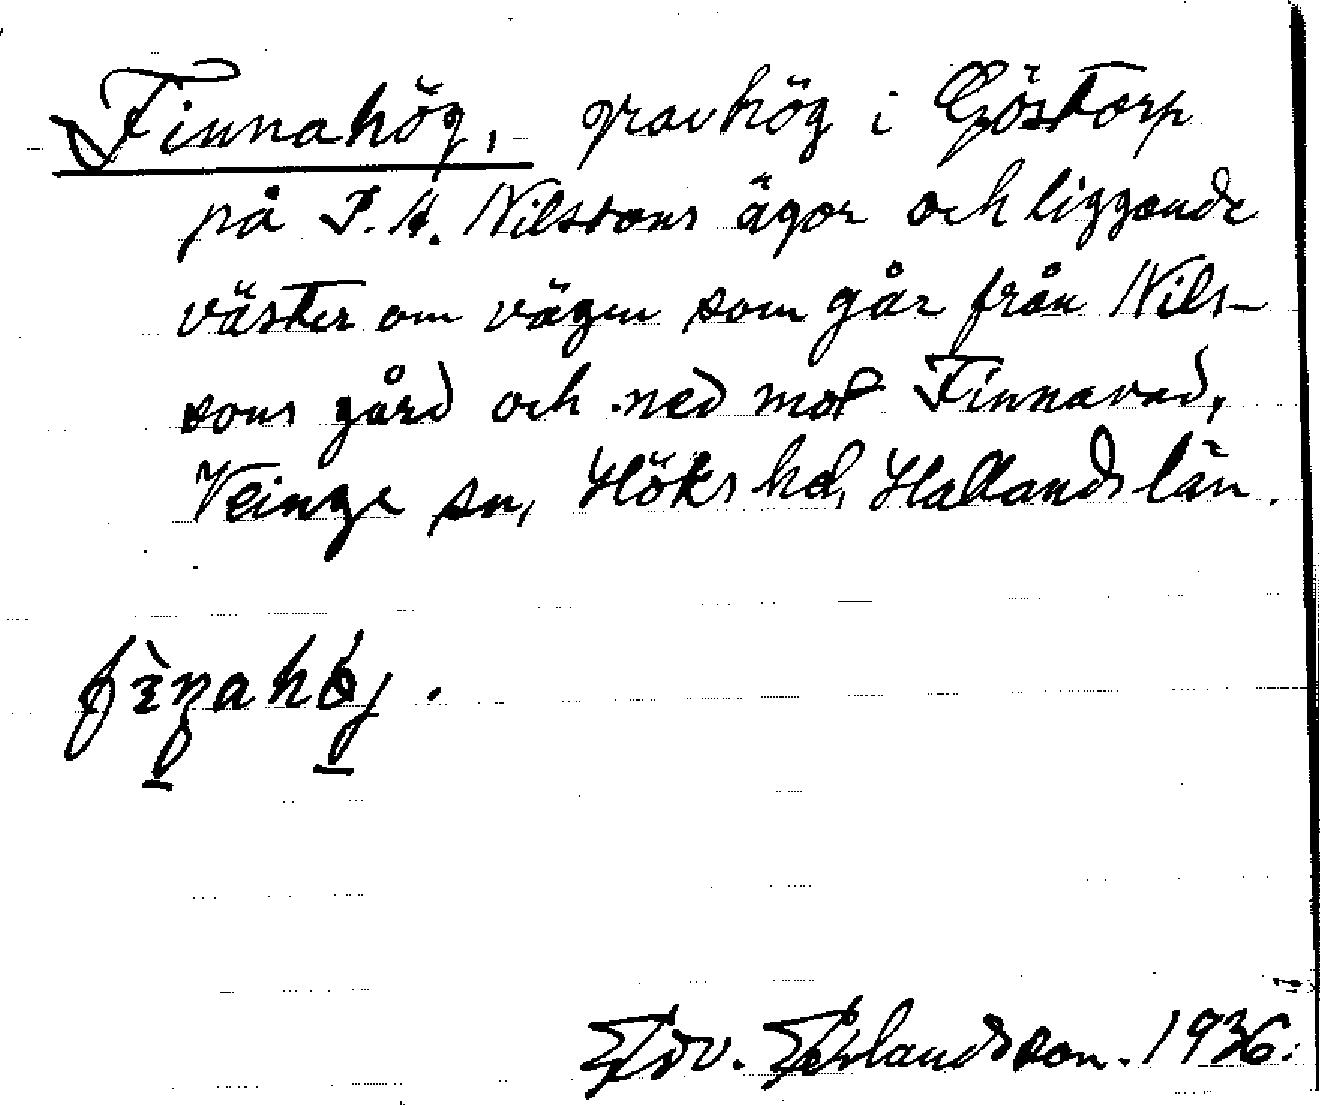 Finnahög, gravhög i Göstorp
på P. A. Nilssons ägor och liggande
väster om vägen som går från Nils-
sons gård och ned mot Finnavad,
Veinge sn, Höks hd, Hallands län.
Edv. Erlandsson. 1936.